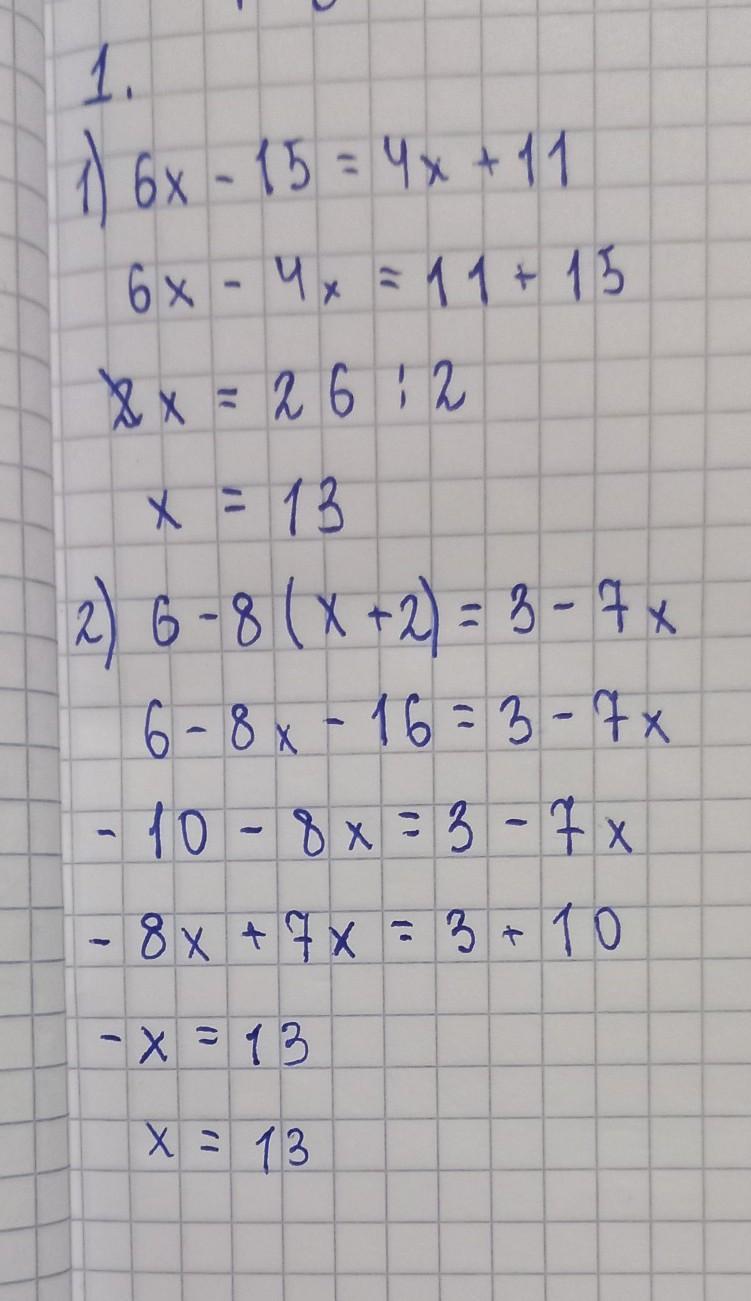 1.
1) 6x - 15 = 4x + 11
6x - 4x = 11 + 15
2x = 26 : 2
x = 13
2) 6 - 8 (x + 2) = 3 - 7x
6 - 8x - 16 = 3 - 7x
- 10 - 8x = 3 - 7x
- 8x + 7x = 3 + 10
- x = 13
x = 13